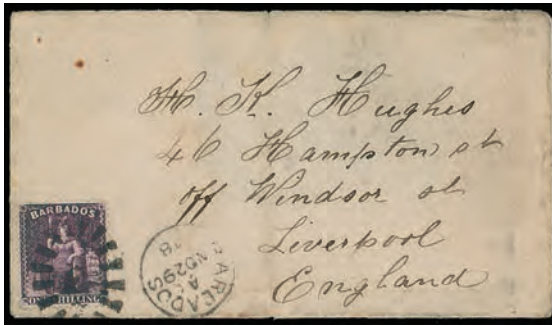 H. K. Hughes
46 Hampton st
off Windsor st
Liverpool
England
BARBADOS
ONE SHILLING
BARBADOS